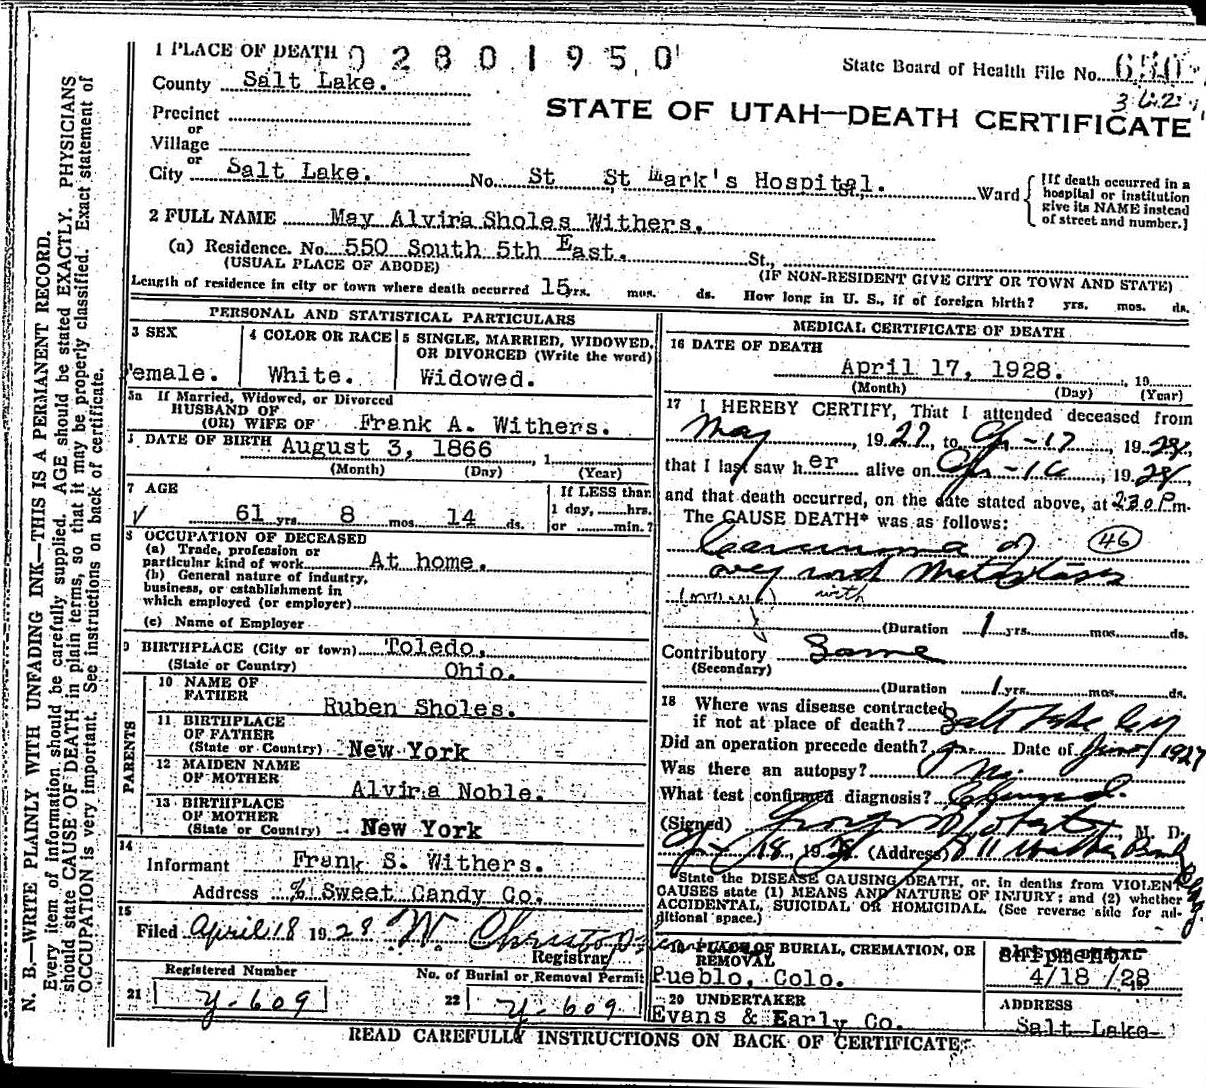 1 PLACE OF DEATH 02801950
State Board of Health File No. 650
County Salt Lake.
362
STATE OF UTAH—DEATH CERTIFICATE
Precinct
or
Village
or
City Salt Lake. No. St St Mark's Hospital. St., Ward
[If death occurred in a hospital or institution give its NAME instead of street and number.]
2 FULL NAME May Alvira Sholes Withers.
(a) Residence. No. 550 South 5th East. St.,
(USUAL PLACE OF ABODE) (IF NON-RESIDENT GIVE CITY OR TOWN AND STATE)
Length of residence in city or town where death occurred 15 yrs. mos. ds. How long in U. S., if of foreign birth? yrs. mos. ds.
PERSONAL AND STATISTICAL PARTICULARS
3 SEX
Female.
4 COLOR OR RACE
White.
5 SINGLE, MARRIED, WIDOWED, OR DIVORCED (Write the word)
Widowed.
5a If Married, Widowed, or Divorced
HUSBAND OF
(OR) WIFE OF Frank A. Withers.
DATE OF BIRTH August 3, 1866 , 1
(Month) (Day) (Year)
7 AGE
61 yrs. 8 mos. 14 ds.
If LESS than
1 day, hrs.
or min.?
8 OCCUPATION OF DECEASED
(a) Trade, profession or
particular kind of work At home.
(b) General nature of industry,
business, or establishment in
which employed (or employer)
(c) Name of Employer
9 BIRTHPLACE (City or town) Toledo,
(State or Country) Ohio.
PARENTS
10 NAME OF
FATHER Ruben Sholes.
11 BIRTHPLACE
OF FATHER
(State or Country) New York
12 MAIDEN NAME
OF MOTHER Alvira Noble.
13 BIRTHPLACE
OF MOTHER
(State or Country) New York
14
Informant Frank S. Withers.
Address % Sweet Candy Co.
15
Filed April 18 1928 W. Christopherson
Registrar
Registered Number
21 Y-609
No. of Burial or Removal Permit
22 Y-609
MEDICAL CERTIFICATE OF DEATH
16 DATE OF DEATH
April 17, 1928. , 19
(Month) (Day) (Year)
17 I HEREBY CERTIFY, That I attended deceased from
May , 1927, to Apr-17 , 1928,
that I last saw her alive on Apr-16 , 1928,
and that death occurred, on the date stated above, at 2:30 P.m.
The CAUSE DEATH* was as follows:
Carcinoma of 46
ovary and Metastasis
with
(Duration 1 yrs. mos. ds.
Contributory Same
(Secondary)
(Duration 1 yrs. mos. ds.
18 Where was disease contracted
if not at place of death? Salt Lake City
Did an operation precede death? yes Date of June/1927
Was there an autopsy? No.
What test confirmed diagnosis?
(Signed) M. D.
Apr 18, 1928. (Address) 811 Walker Bank Bldg
State the DISEASE CAUSING DEATH, or, in deaths from VIOLENT
CAUSES state (1) MEANS AND NATURE OF INJURY; and (2) whether
ACCIDENTAL, SUICIDAL OR HOMICIDAL. (See reverse side for additional space.)
19 PLACE OF BURIAL, CREMATION, OR
REMOVAL
Pueblo, Colo.
shipment
4/18 /28
20 UNDERTAKER
Evans & Early Co.
ADDRESS
Salt Lake
READ CAREFULLY INSTRUCTIONS ON BACK OF CERTIFICATE.
N. B.—WRITE PLAINLY WITH UNFADING INK—THIS IS A PERMANENT RECORD.
Every item of information should be carefully supplied. AGE should be stated EXACTLY. PHYSICIANS
should state CAUSE OF DEATH in plain terms, so that it may be properly classified. Exact statement of
OCCUPATION is very important. See instructions on back of certificate.